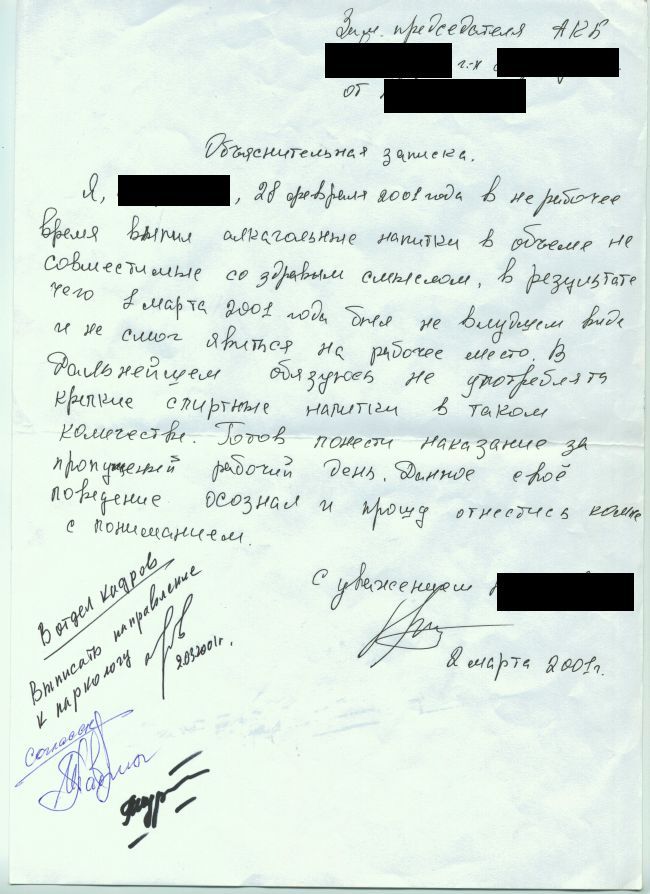 Зам. председателя АКБ
г-н
от
Объяснительная записка.
Я, , 28 февраля 2001 года в не рабочее
время выпил алкагольные напитки в объеме не
совместимые со здравым смыслом, в результате
чего 1 марта 2001 года был не в лудшем виде
и не смог явиться на рабочее место. В
Дальнейшем обязуюсь не употреблять
крепкие спиртные напитки в таком
количестве. Готов понести наказание за
пропущеный рабочий день. Данное своё
поведение осознал и прошу отнестись ко мне
с пониманием.
С уважением
2 марта 2001г.
В отдел кадров
Выписать направление
к наркологу
2.03.2001г.
согласен